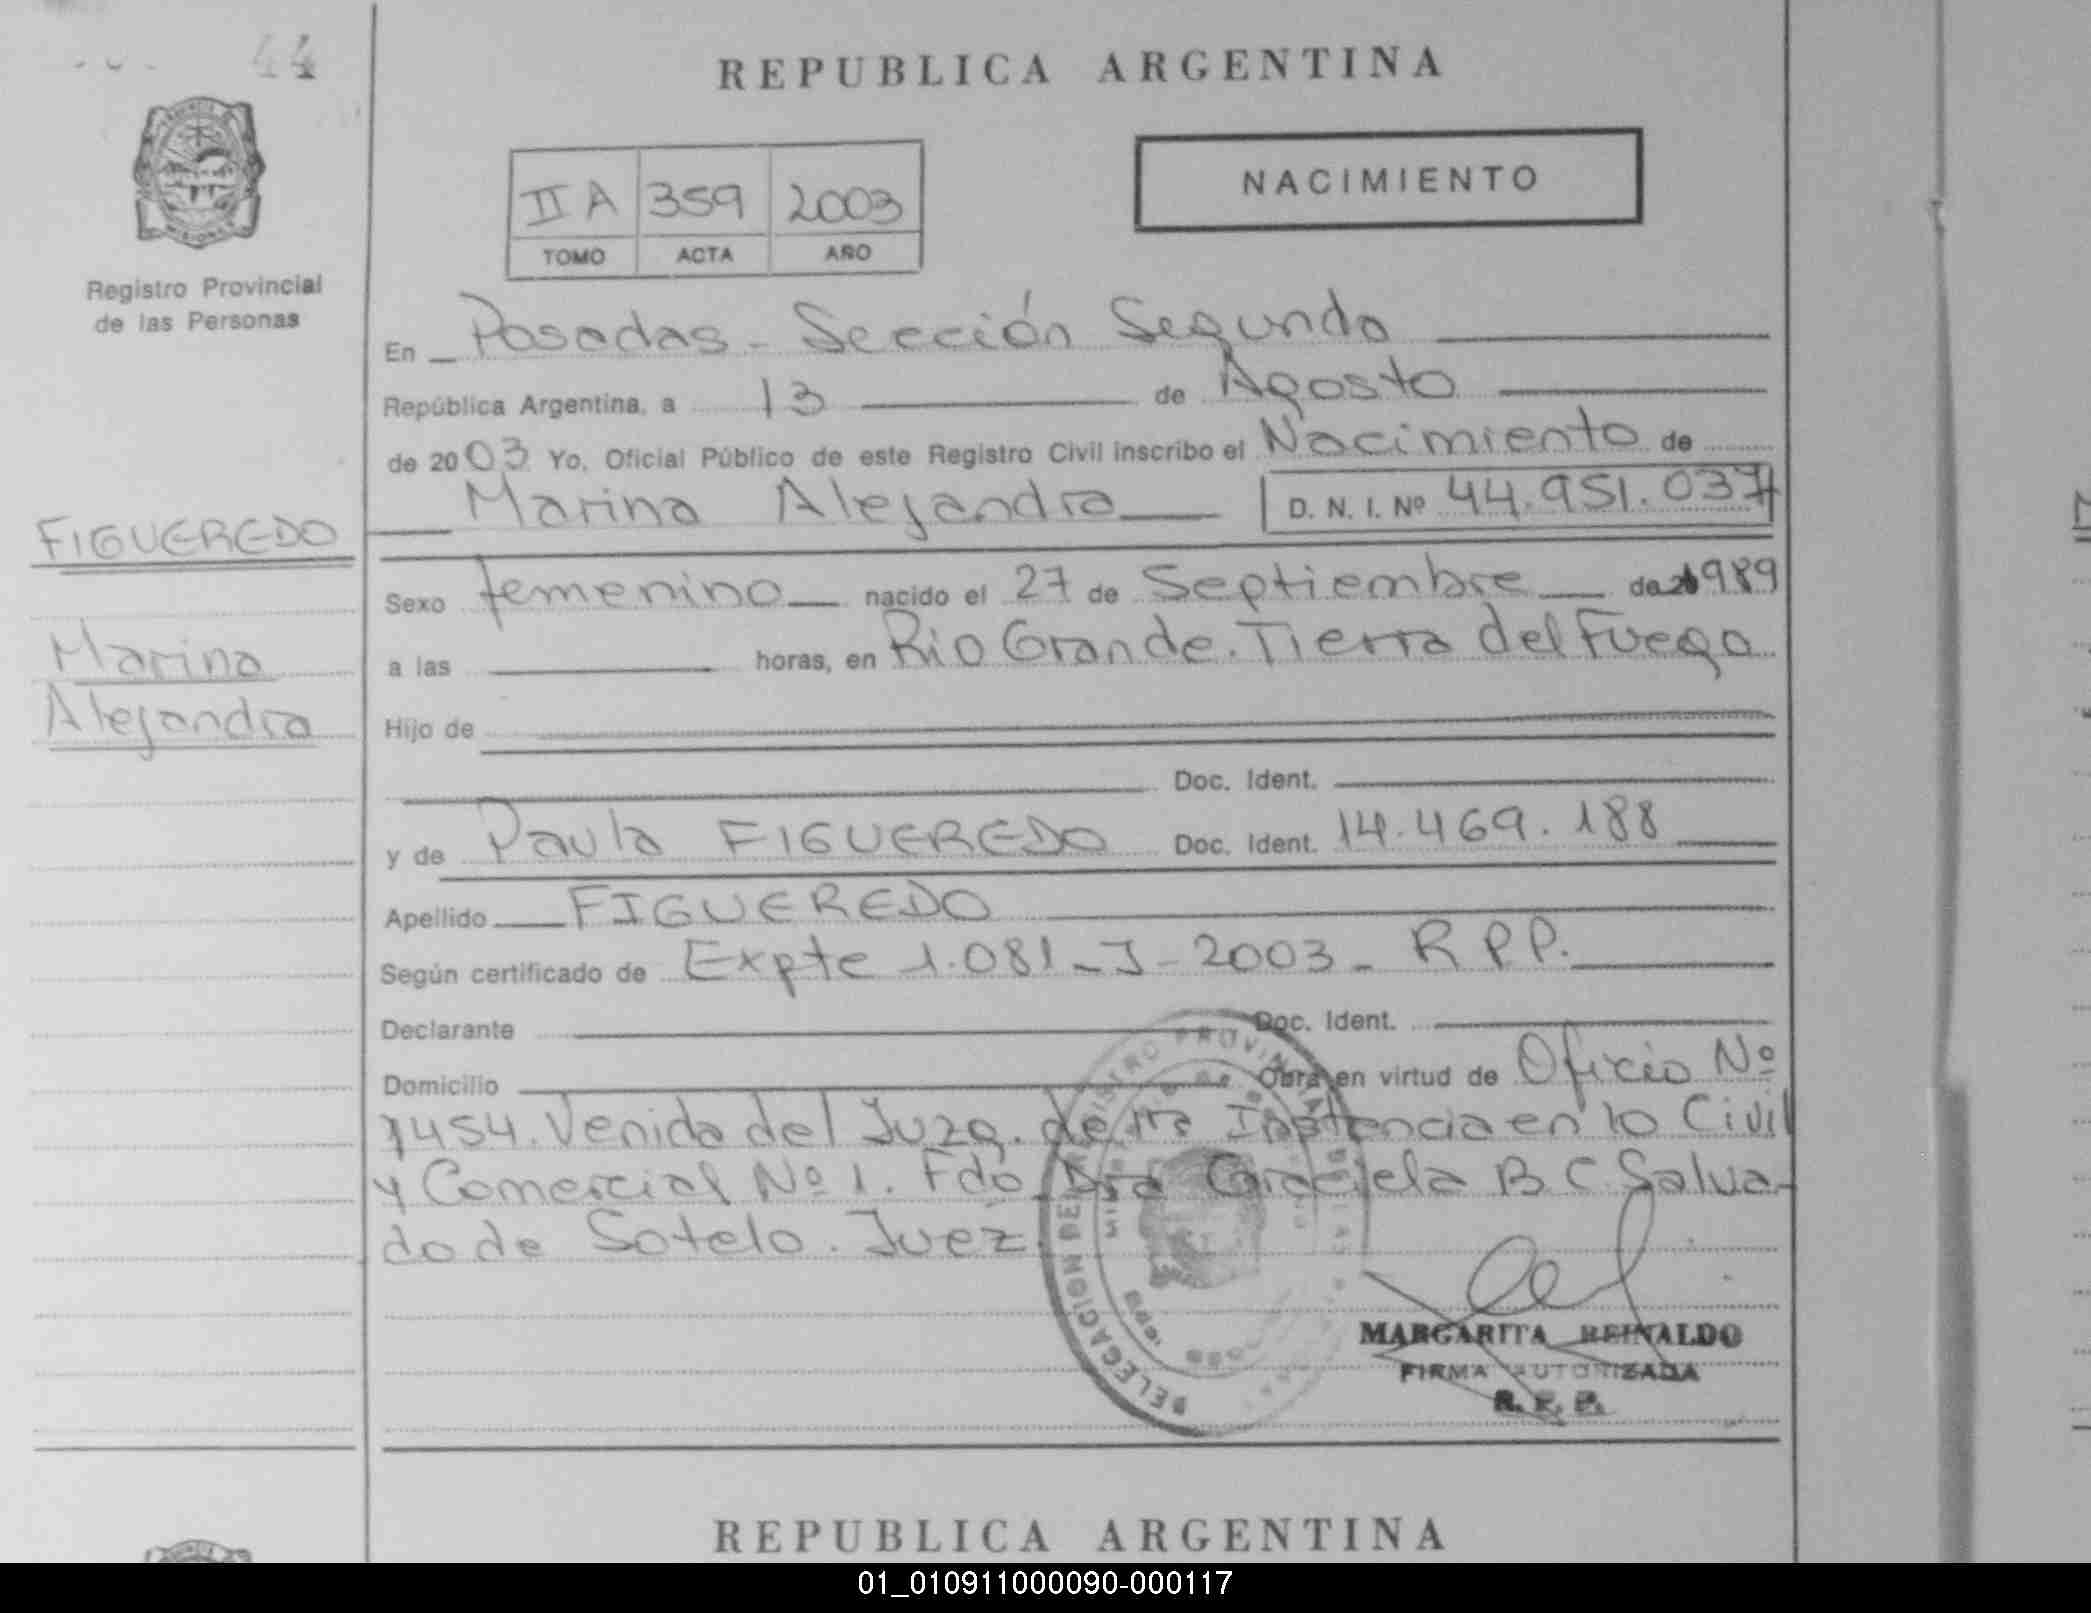 44
REPUBLICA ARGENTINA
NACIMIENTO
II A 359 2003
TOMO ACTA AÑO
Registro Provincial
de las Personas
En Posadas - Sección Segunda
República Argentina, a 13 de Agosto
de 2003 Yo, Oficial Público de este Registro Civil inscribo el Nacimiento de
Marina Alejandra D. N. I. Nº 44.951.037
FIGUEREDO
Sexo femenino nacido el 27 de Septiembre de 1989
Marina
a las horas, en Rio Grande. Tierra del Fuego
Alejandra
Hijo de
Doc. Ident.
y de Paula FIGUEREDO Doc. Ident. 14.469.188
Apellido FIGUEREDO
Según certificado de Expte 1.081-J-2003 - R P P.
Declarante Doc. Ident.
Domicilio Obra en virtud de Oficio Nº
1454. Venida del Juzg. de 1ra Instancia en lo Civil
y Comercial Nº 1. Fdo. Dra Graciela B C Salva-
do de Sotelo. Juez
DELEGACION DEL REGISTRO PROVINCIAL DE LAS
MARGARITA REINALDO
FIRMA AUTORIZADA
R. P. P.
REPUBLICA ARGENTINA
01_010911000090-000117